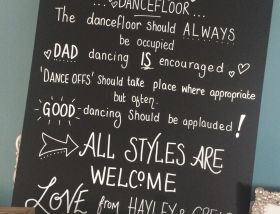 ...DANCEFLOOR...
The dancefloor should ALWAYS
be occupied
DAD dancing IS encouraged
'DANCE OFFS' should take place where appropriate
but often.
GOOD dancing should be applauded!
ALL STYLES ARE
WELCOME
LOVE from HAYLEY &